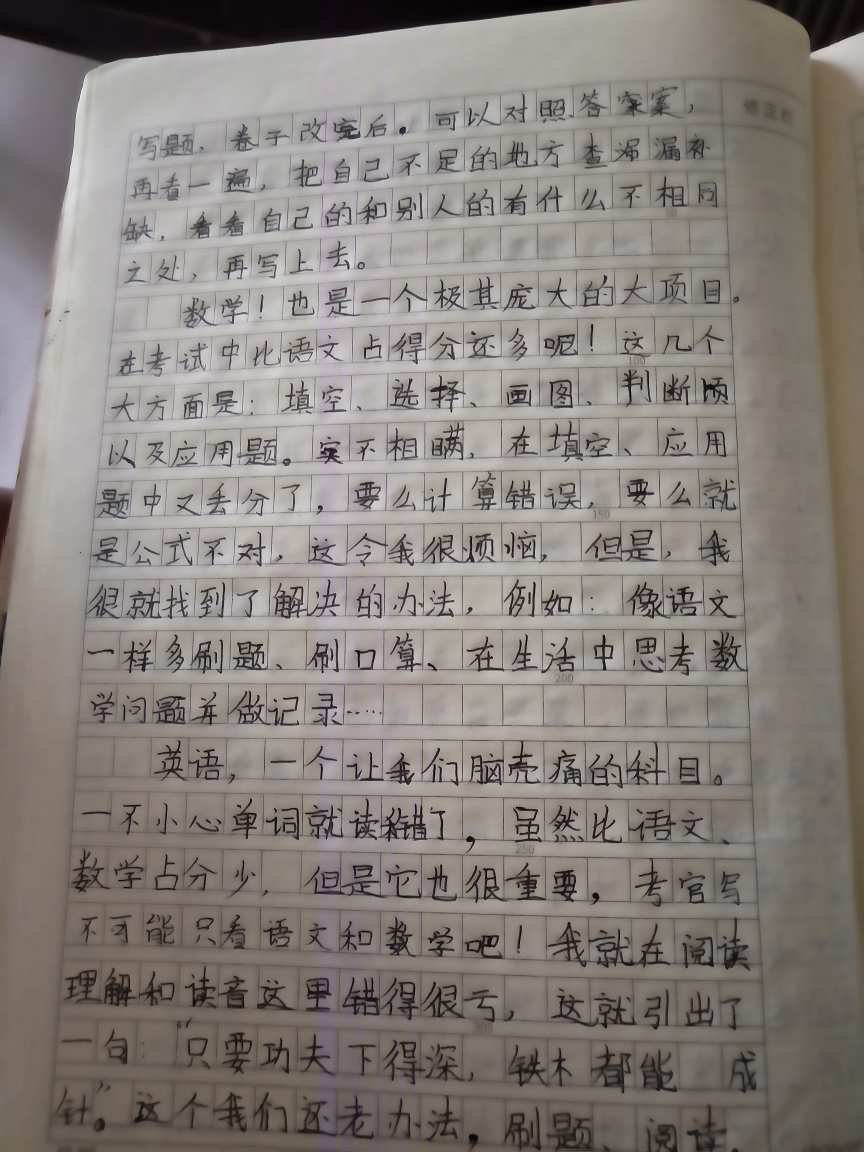 写题，卷子改完后。可以对照答案案，
再看一遍，把自己不足的地方查漏漏补
缺，看看自己的和别人的有什么不相同
之处，再写上去。
数学！也是一个极其庞大的大项目。
在考试中比语文占得分还多呢！这几个
100
大方面是：填空、选择、画图、判断
以及应用题。实不相瞒，在填空、应用
题中又丢分了，要么计算错误，要么就
150
是公式不对，这令我很烦恼，但是，我
很就找到了解决的办法，例如：像语文
一样多刷题、刷口算、在生活中思考数
200
学问题并做记录……
英语，一个让我们脑壳痛的科目。
一不小心单词就读错了，虽然比语文、
250
数学占分少，但是它也很重要，考官写
不可能只看语文和数学吧！我就在阅读
理解和读音这里错得很亏，这就引出了
一句：“只要功夫下得深，铁木都能成
针”。这个我们还老办法，刷题、阅读，